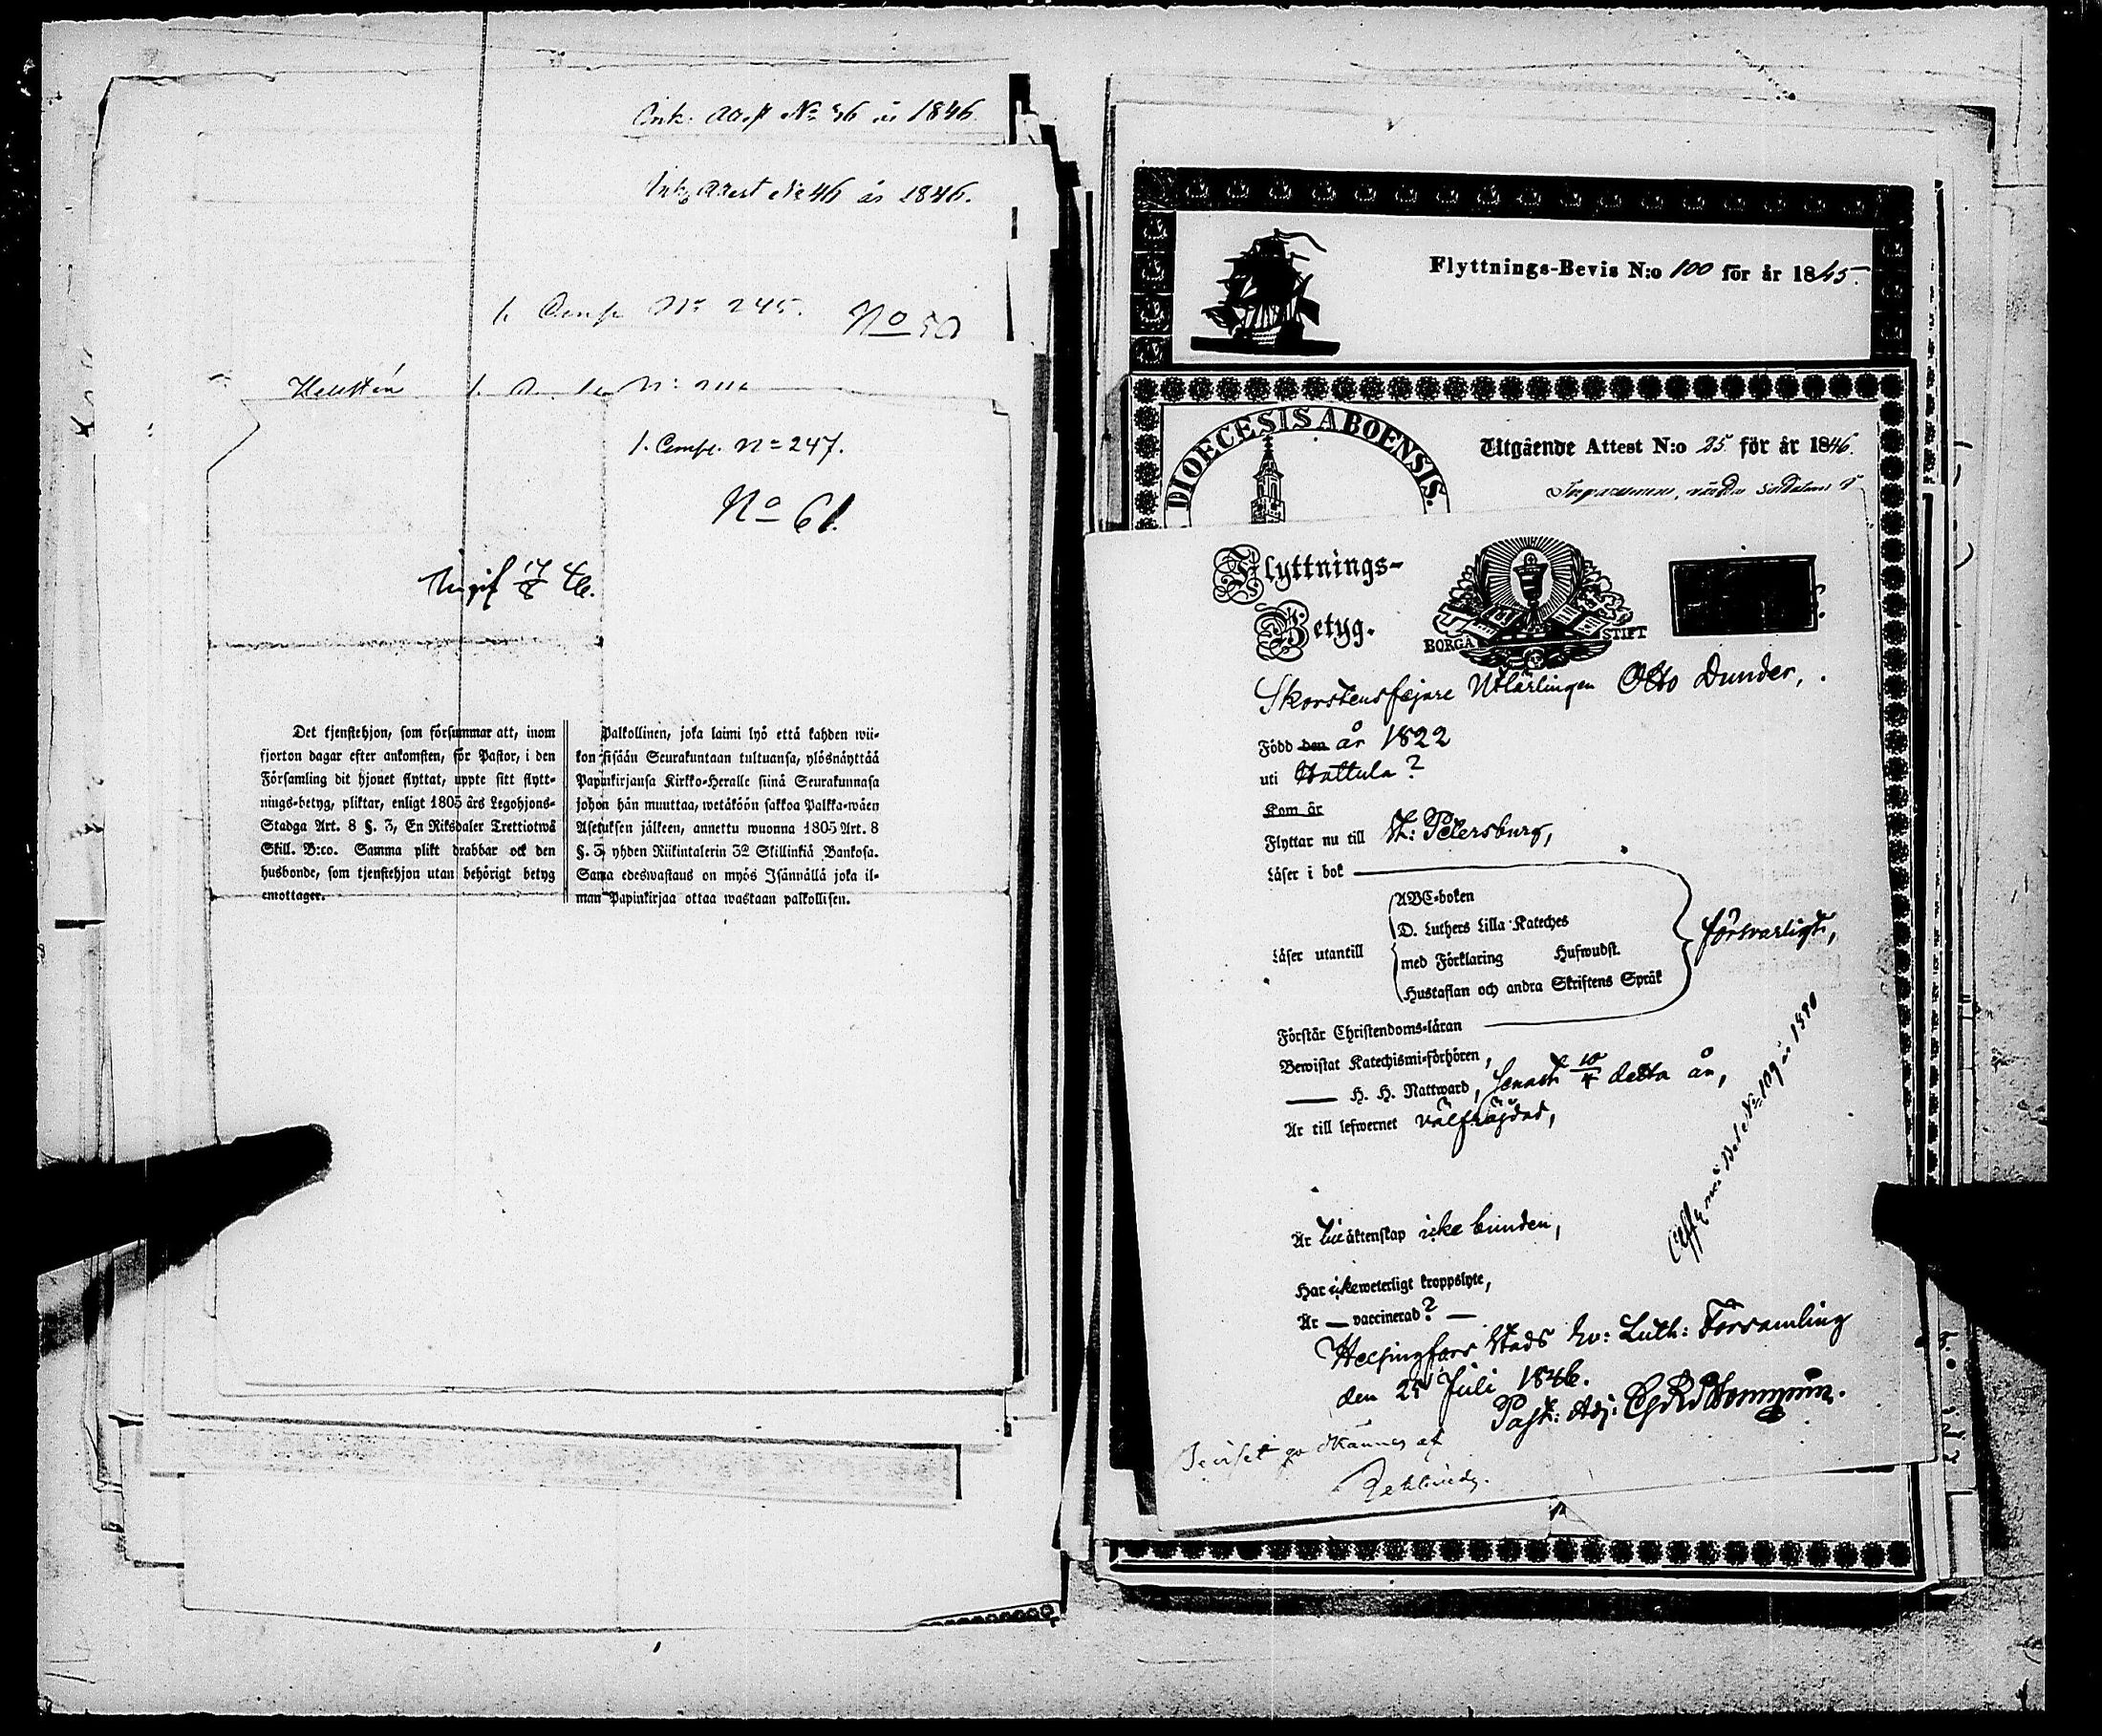 Ink: Attest No 36 år 1846.
Ink. Attest No 46 år 1846.
1. Comp. No 245. No 50
Hellstén
1. Comp. No 247.
No 61.
Det tjenstehjon, som försummar att, inom
fjorton dagar efter ankomsten, för Pastor, i den
Församling dit hjonet flyttat, uppte sitt flytt-
nings-betyg, pliktar, enligt 1805 års Legohjons-
Stadga Art. 8 §. 3, En Riksdaler Trettiotwå
Skill. B:co. Samma plikt drabbar ock den
husbonde, som tjenstehjon utan behörigt betyg
emottager.
Palkollinen, joka laimi lyö että kahden wii-
kon sisään Seurakuntaan tultuansa, ylösnäyttää
Papinkirjansa Kirkko-Heralle siinä Seurakunnasa
johon hän muuttaa, wetäköön sakkoa Palkka-wäen
Asetuksen jälkeen, annettu wuonna 1805 Art. 8
§. 3, yhden Riikintalerin 32 Skillinkiä Bankosa.
Sama edeswastaus on myös Isännällä joka il-
man Papinkirjaa ottaa wastaan palkollisen.
Flyttnings-Bevis N:o 100 för år 1845.
DIOECESIS ABOENSIS.
Utgående Attest N:o 25 för år 1846.
Flyttnings-
Betyg.
BORGÅ STIFT
Skorstensfejare Utlärlingen Otto Dunder,
Född den år 1822
uti Hattula?
Kom år
Flyttar nu till St: Petersburg,
Läser i bok
Läser utantill
ABC-boken
D. Luthers Lilla Kateches
med Förklaring Hufwudst.
Hustaflan och andra Skriftens Språk
försvarligt,
Förstår Christendoms-läran
Bewistat Katechismi-förhören,
H. H. Nattward, senast 10/4 detta år,
Är till lefwernet välfräjdad,
Är till äktenskap icke bunden,
Har icke weterligt kroppslyte,
Är — vaccinerad? —
Helsingfors Stads Ev: Luth: Församling
den 25 Juli 1846.
Past: Adj:
Beviset godkännes af